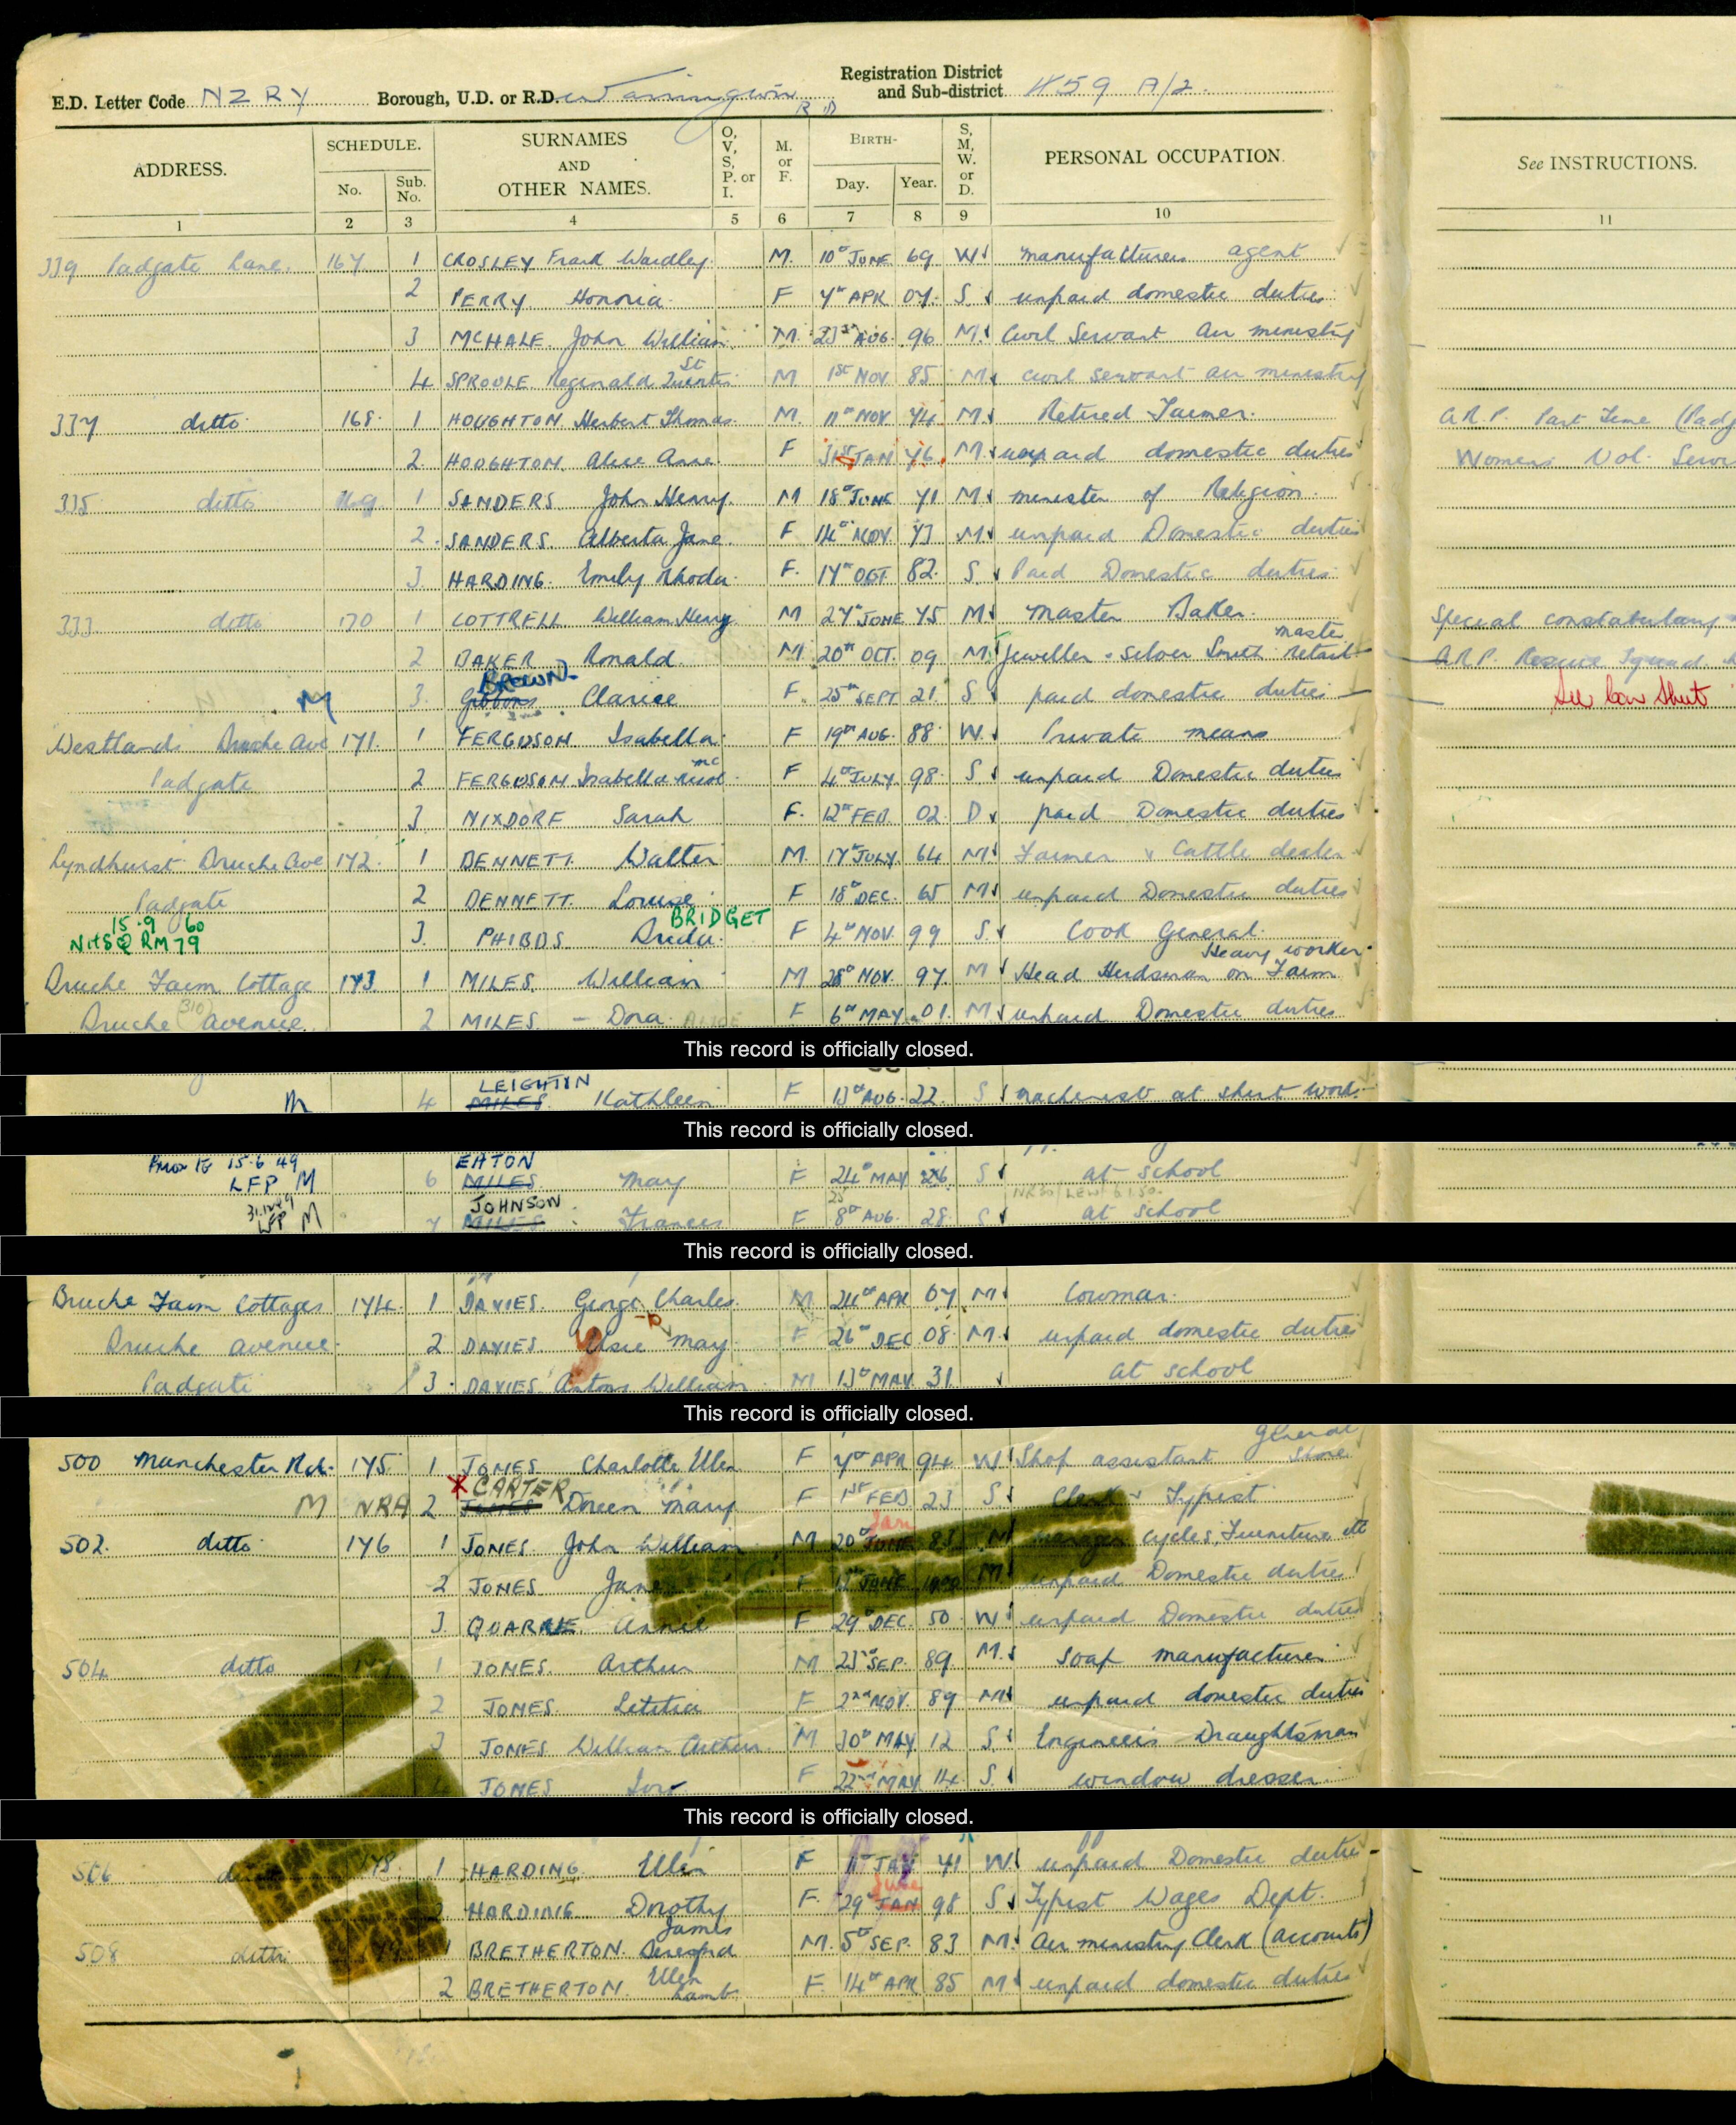 E.D. Letter Code NZRY Borough, U.D. or R.D. Warrington R D Registration District and Sub-district 459 A/2
ADDRESS. SCHEDULE. No. Sub. No. SURNAMES AND OTHER NAMES. O, V, S, P. or I. M. or F. BIRTH- Day. Year. S, M, W. or D. PERSONAL OCCUPATION. See INSTRUCTIONS.
1 2 3 4 5 6 7 8 9 10 11
339 Padgate Lane. 167 1 CROSLEY Frank Wardley. M. 10th JUNE 69 W manufacturers agent
2 PERRY Honoria. F 7th APR 07. S. unpaid domestic duties
3 MCHALE John William. M. 23rd AUG. 96 M. Civil Servant Air ministry
4 SPROULE Reginald St M 1st NOV 85 M civil servant air ministry
337 ditto 168. 1 HOUGHTON Herbert Thomas. M. 11th NOV 74 M. Retired Farmer. A.R.P. Part Time
2. HOUGHTON Alice Anne. F 31st JAN 76. M. unpaid domestic duties Womens Vol.
335 ditto 169 1 SANDERS John Henry. M 18th JUNE 71 M. minister of Religion.
2. SANDERS. Alberta Jane. F. 14th NOV. 73 M unpaid Domestic duties
3. HARDING. Emily Rhoda. F. 17th OCT. 82. S. Paid Domestic duties.
333 ditto 170 1 COTTRELL William Henry M 27th JUNE 75 M. master Baker. Special constabulary
2 BAKER Ronald. M. 20th OCT. 09 M. Jeweller & Silver Smith retail master A.R.P. Rescue Squad.
M 3. Gibbons BROWN. Clarice F. 25th SEPT 21. S paid domestic duties
Westlands Bruche Ave 171. 1 FERGUSON Isabella. F 19th AUG. 88. W. Private means
Padgate 2 FERGUSON Isabella mc F 4th JULY 98. S unpaid Domestic duties
3 NIXDORF Sarah F. 12th FEB. 02. D paid Domestic duties
Lyndhurst Bruche Ave 172. 1 BENNETT Walter M. 17th JULY 64 M Farmer & Cattle dealer
Padgate 2 BENNETT Louise. F 18th DEC. 65 M unpaid Domestic duties
15.9 60 NHS@ RM79 3. PHIBBS. BRIDGET F 4th NOV. 99 S. Cook General.
Bruche Farm Cottage 173 1 MILES. William M 28th NOV. 97. M Head Herdsman on Farm Heavy worker.
Bruche (310) avenue. 2 MILES Dora ALICE F 6th MAY. 01. M unpaid Domestic duties
This record is officially closed.
M 4 MILES LEIGHTON Kathleen F 13th AUG. 22. S machinist at shirt work.
This record is officially closed.
Prior to 15.6 49 LFP M 6 MILES EATON May F 24th MAY 26 S at school
LFP M 7 MILES JOHNSON Frances F 8th AUG. 28. S at school
This record is officially closed.
Bruche Farm Cottages 174. 1 DAVIES. George Charles. M 24th APR 07 M Cowman.
Bruche avenue. 2 DAVIES Elsie May. F 26th DEC 08. M. unpaid domestic duties
Padgate 3. DAVIES William M 13th MAY. 31. at school
This record is officially closed.
500 Manchester Rd. 175 1 JONES. Charlotte Ellen F 7th APR 94 W Shop assistant general store
M NRA 2 JONES CARTER Doreen Mary F 1st FEB 23 S. Clerk & Typist
502. ditto 176 1 JONES. John William M 20th JUNE Jan 83 M manager cycles, Furniture etc
2 JONES Jane F JUNE M unpaid Domestic duties
3. QUARRIE Annie F 29th DEC. 50 W unpaid Domestic duties
504 ditto 1 JONES. Arthur M 23rd SEP. 89 M. Soap manufacturer
2 JONES. Letitia F 2nd NOV. 89 M unpaid domestic duties
3 JONES William Arthur. M 30th MAY 12 S. Engineers Draughtsman
4 JONES F 22nd MAY 14. S. window dresser.
This record is officially closed.
506 ditto 178. 1 HARDING. Ellen F 11th JAN 71 W. unpaid Domestic duties
2 HARDING Dorothy F. 29th JAN June 98 S Typist Wages Dept.
508 ditto 179 1 BRETHERTON. James Beresford M. 5th SEP. 83 M. Air ministry Clerk (accounts)
2 BRETHERTON. Ellen Lamb F. 14th APR 85 M unpaid domestic duties